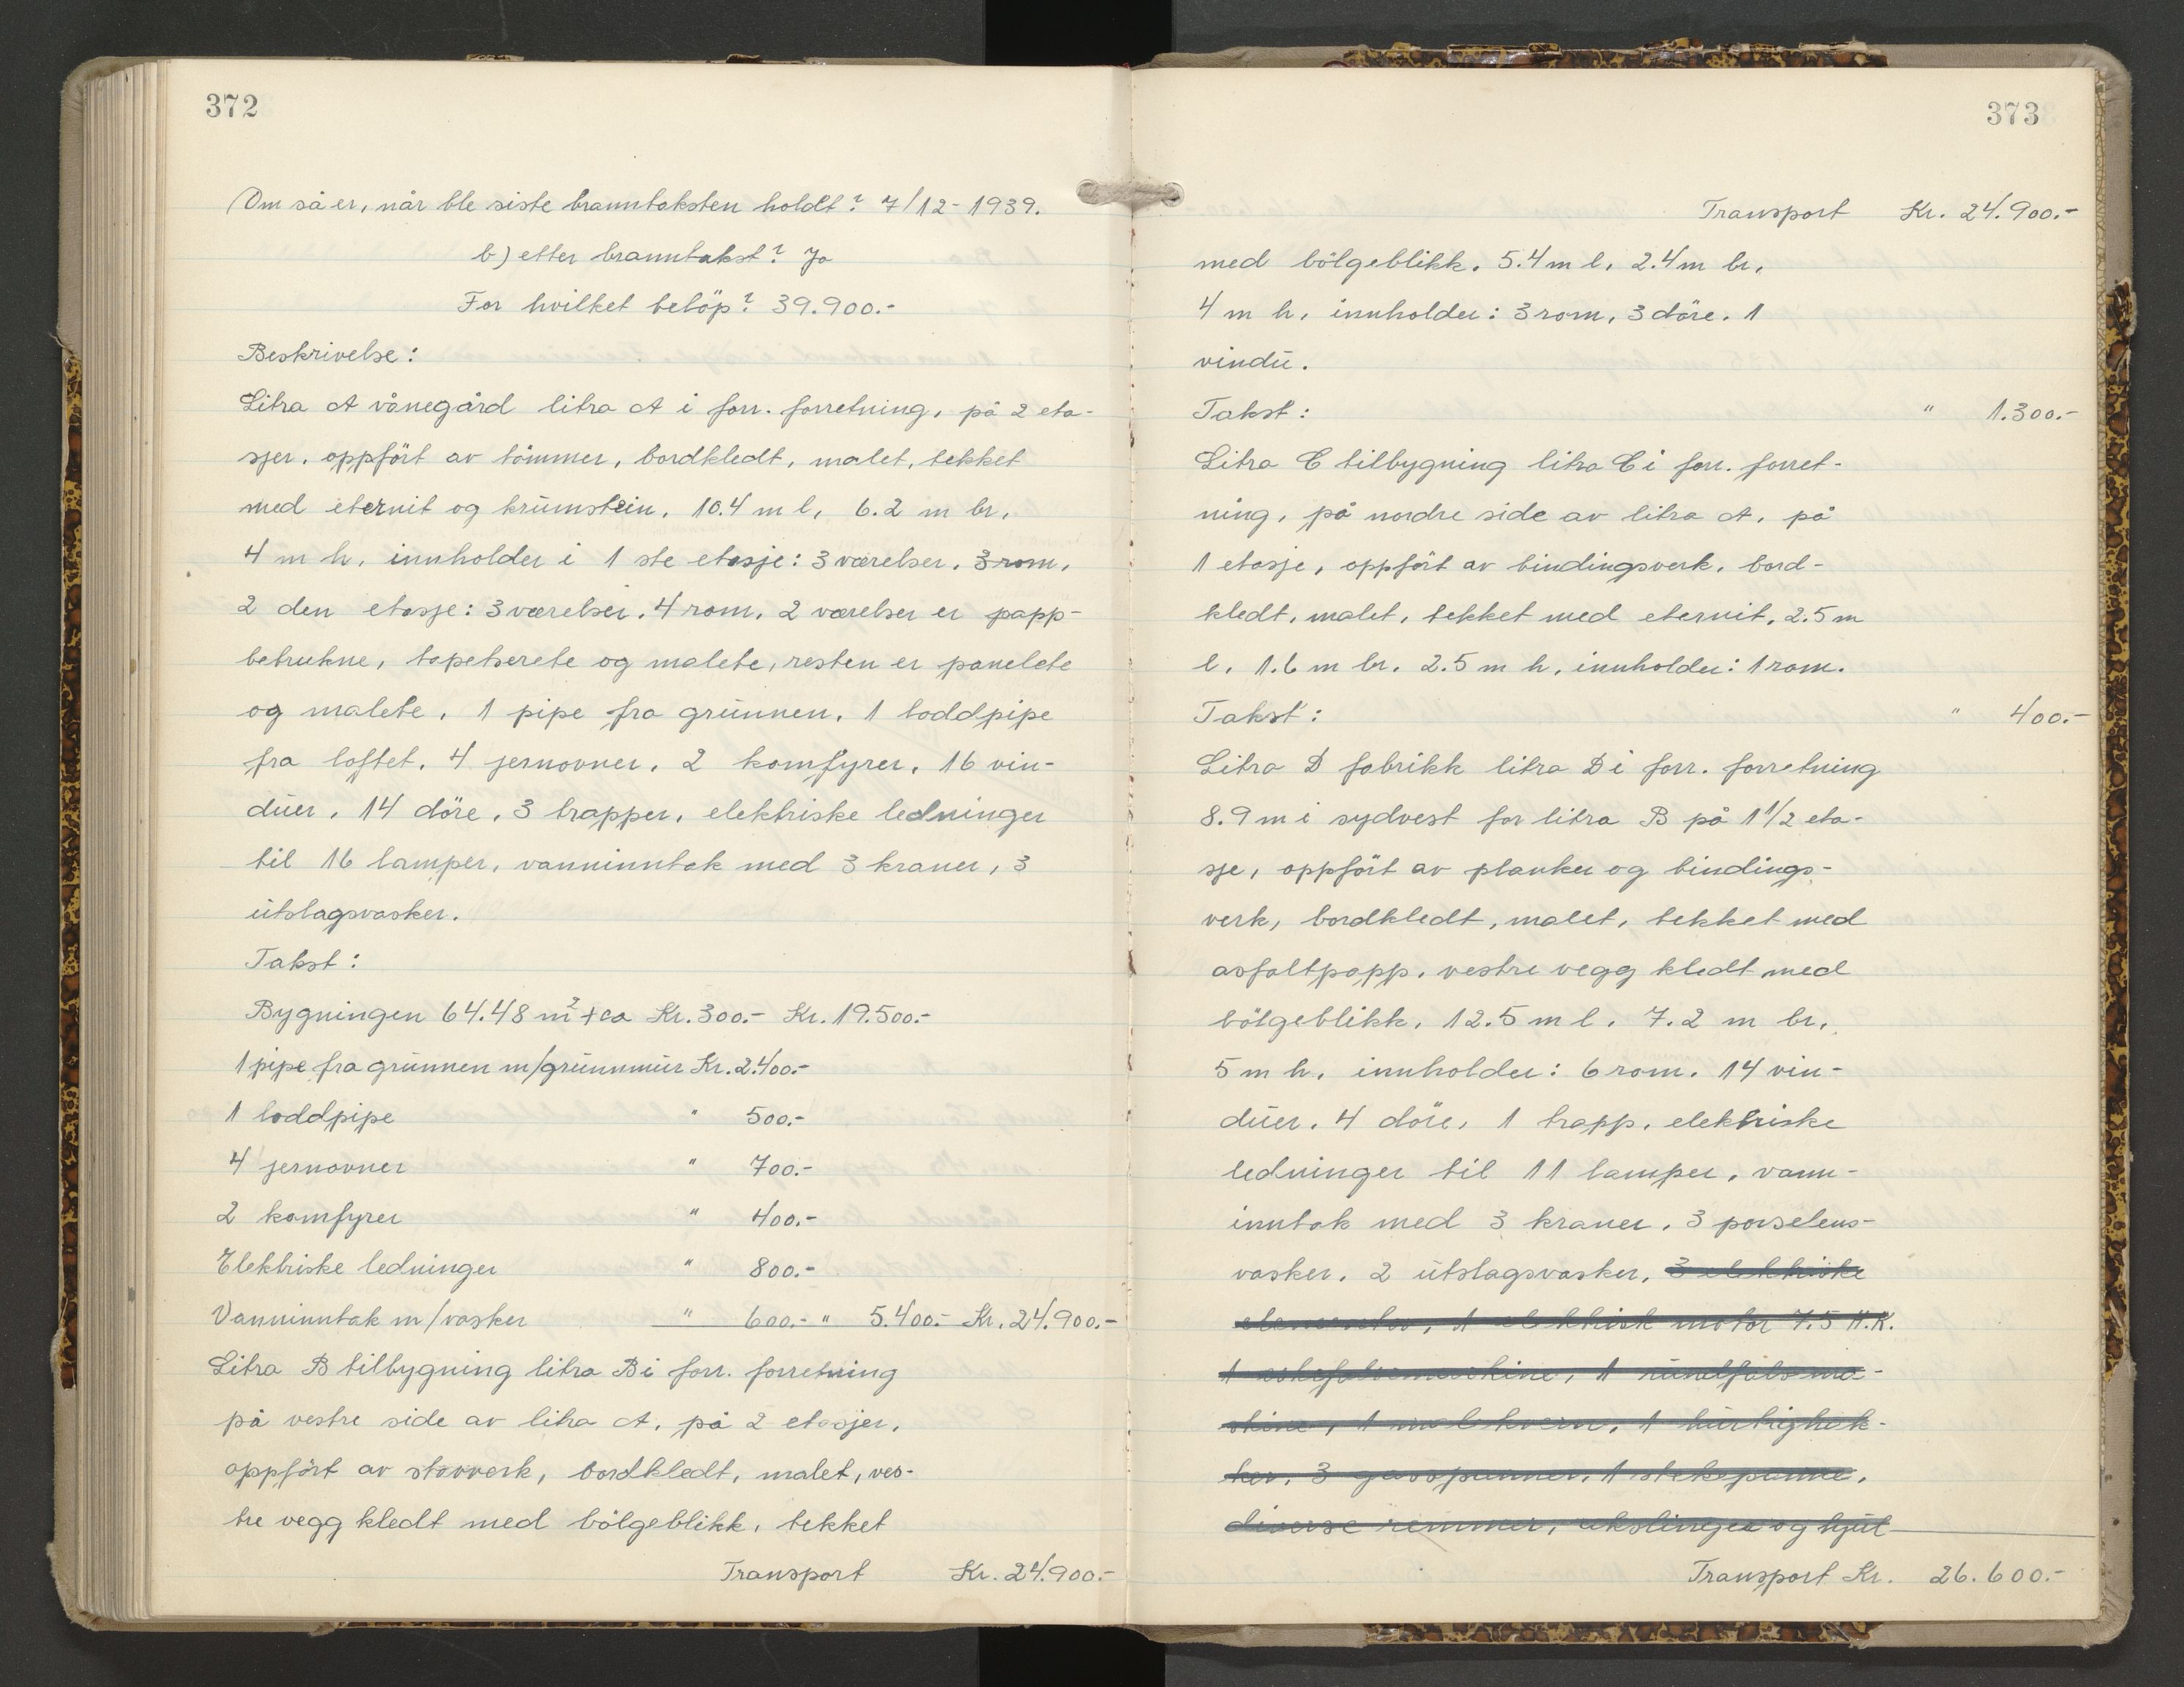 372
Om så er, når ble siste branntaksten holdt? 7/12-1939.
b) etter branntakst? Ja
For hvilket beløp? 39.900.-
Beskrivelse:
Litra A vånegård litra A i forr. forretning, på 2 eta-
sjer, oppfört av tömmer, bordkledt, malet, tekket
med eternit og krumstein, 10.4 m l, 6.2 m br,
4 m h, innholder i 1 ste etasje: 3 værelser, 3 rom,
2 den etasje: 3 værelser, 4 rom, 2 værelser er papp-
betrukne, tapetserete og malete, resten er panelete
og malete, 1 pipe fra grunnen, 1 loddpipe
fra loftet, 4 jernovner, 2 komfyrer, 16 vin-
duer, 14 döre, 3 trapper, elektriske ledninger
til 16 lamper, vanninntak med 3 kraner, 3
utslagsvasker.
Takst:
Bygningen 64.48 m² + ca Kr. 300.- Kr. 19.500.-
1 pipe fra grunnen m/grunnmur Kr. 2.400.-
1 loddpipe " 500.-
4 jernovner " 700.-
2 komfyrer " 400.-
Elektriske ledninger " 800.-
Vanninntak m/vasker " 600.- " 5.400.- Kr. 24.900.-
Litra B tilbygning litra B i forr. forretning
på vestre side av litra A, på 2 etasjer,
oppfört av stavverk, bordkledt, malet, ves-
tre vegg kledt med bölgeblikk, tekket
Transport Kr. 24.900.-
373
Transport Kr. 24.900.-
med bölgeblikk. 5.4 m l, 2.4 m br,
4 m h, innholder: 3 rom, 3 döre, 1
vindu.
Takst: " 1.300.-
Litra C tilbygning litra C i forr. forret-
ning, på nordre side av litra A, på
1 etasje, oppfört av bindingsverk, bord-
kledt, malet, tekket med eternit, 2.5 m
l, 1.6 m br, 2.5 m h, innholder: 1 rom.
Takst: " 400.-
Litra D fabrikk litra D i forr. forretning
8.9 m i sydvest for litra B på 1 1/2 eta-
sje, oppfört av planker og bindings-
verk, bordkledt, malet, tekket med
asfaltpapp, vestre vegg kledt med
bölgeblikk, 12.5 m l, 7.2 m br,
5 m h, innholder: 6 rom, 14 vin-
duer, 4 döre, 1 trapp, elektriske
ledninger til 11 lamper, vann-
inntak med 3 kraner, 3 porselens-
vasker, 2 utslagsvasker, 3 elektriske
elementer, 1 elektrisk motor 7.5 H.K.
1 eskefalsemaskine, 1 rundfalsma-
skine, 1 malekvern, 1 hurtighak-
ker, 3 gasspanner, 1 stekepanne,
diverse remmer, akslinger og hjul
Transport Kr. 26.600.-